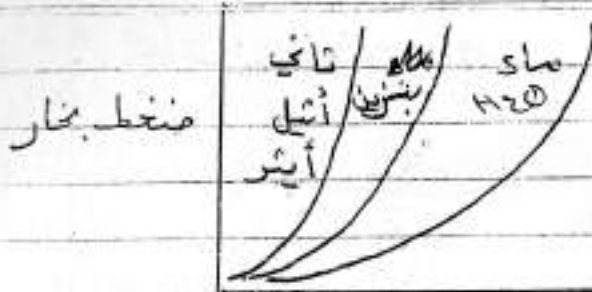 ضغط بخار
ثاني
أثيل
أيثر
بنزين
ماء
H2O